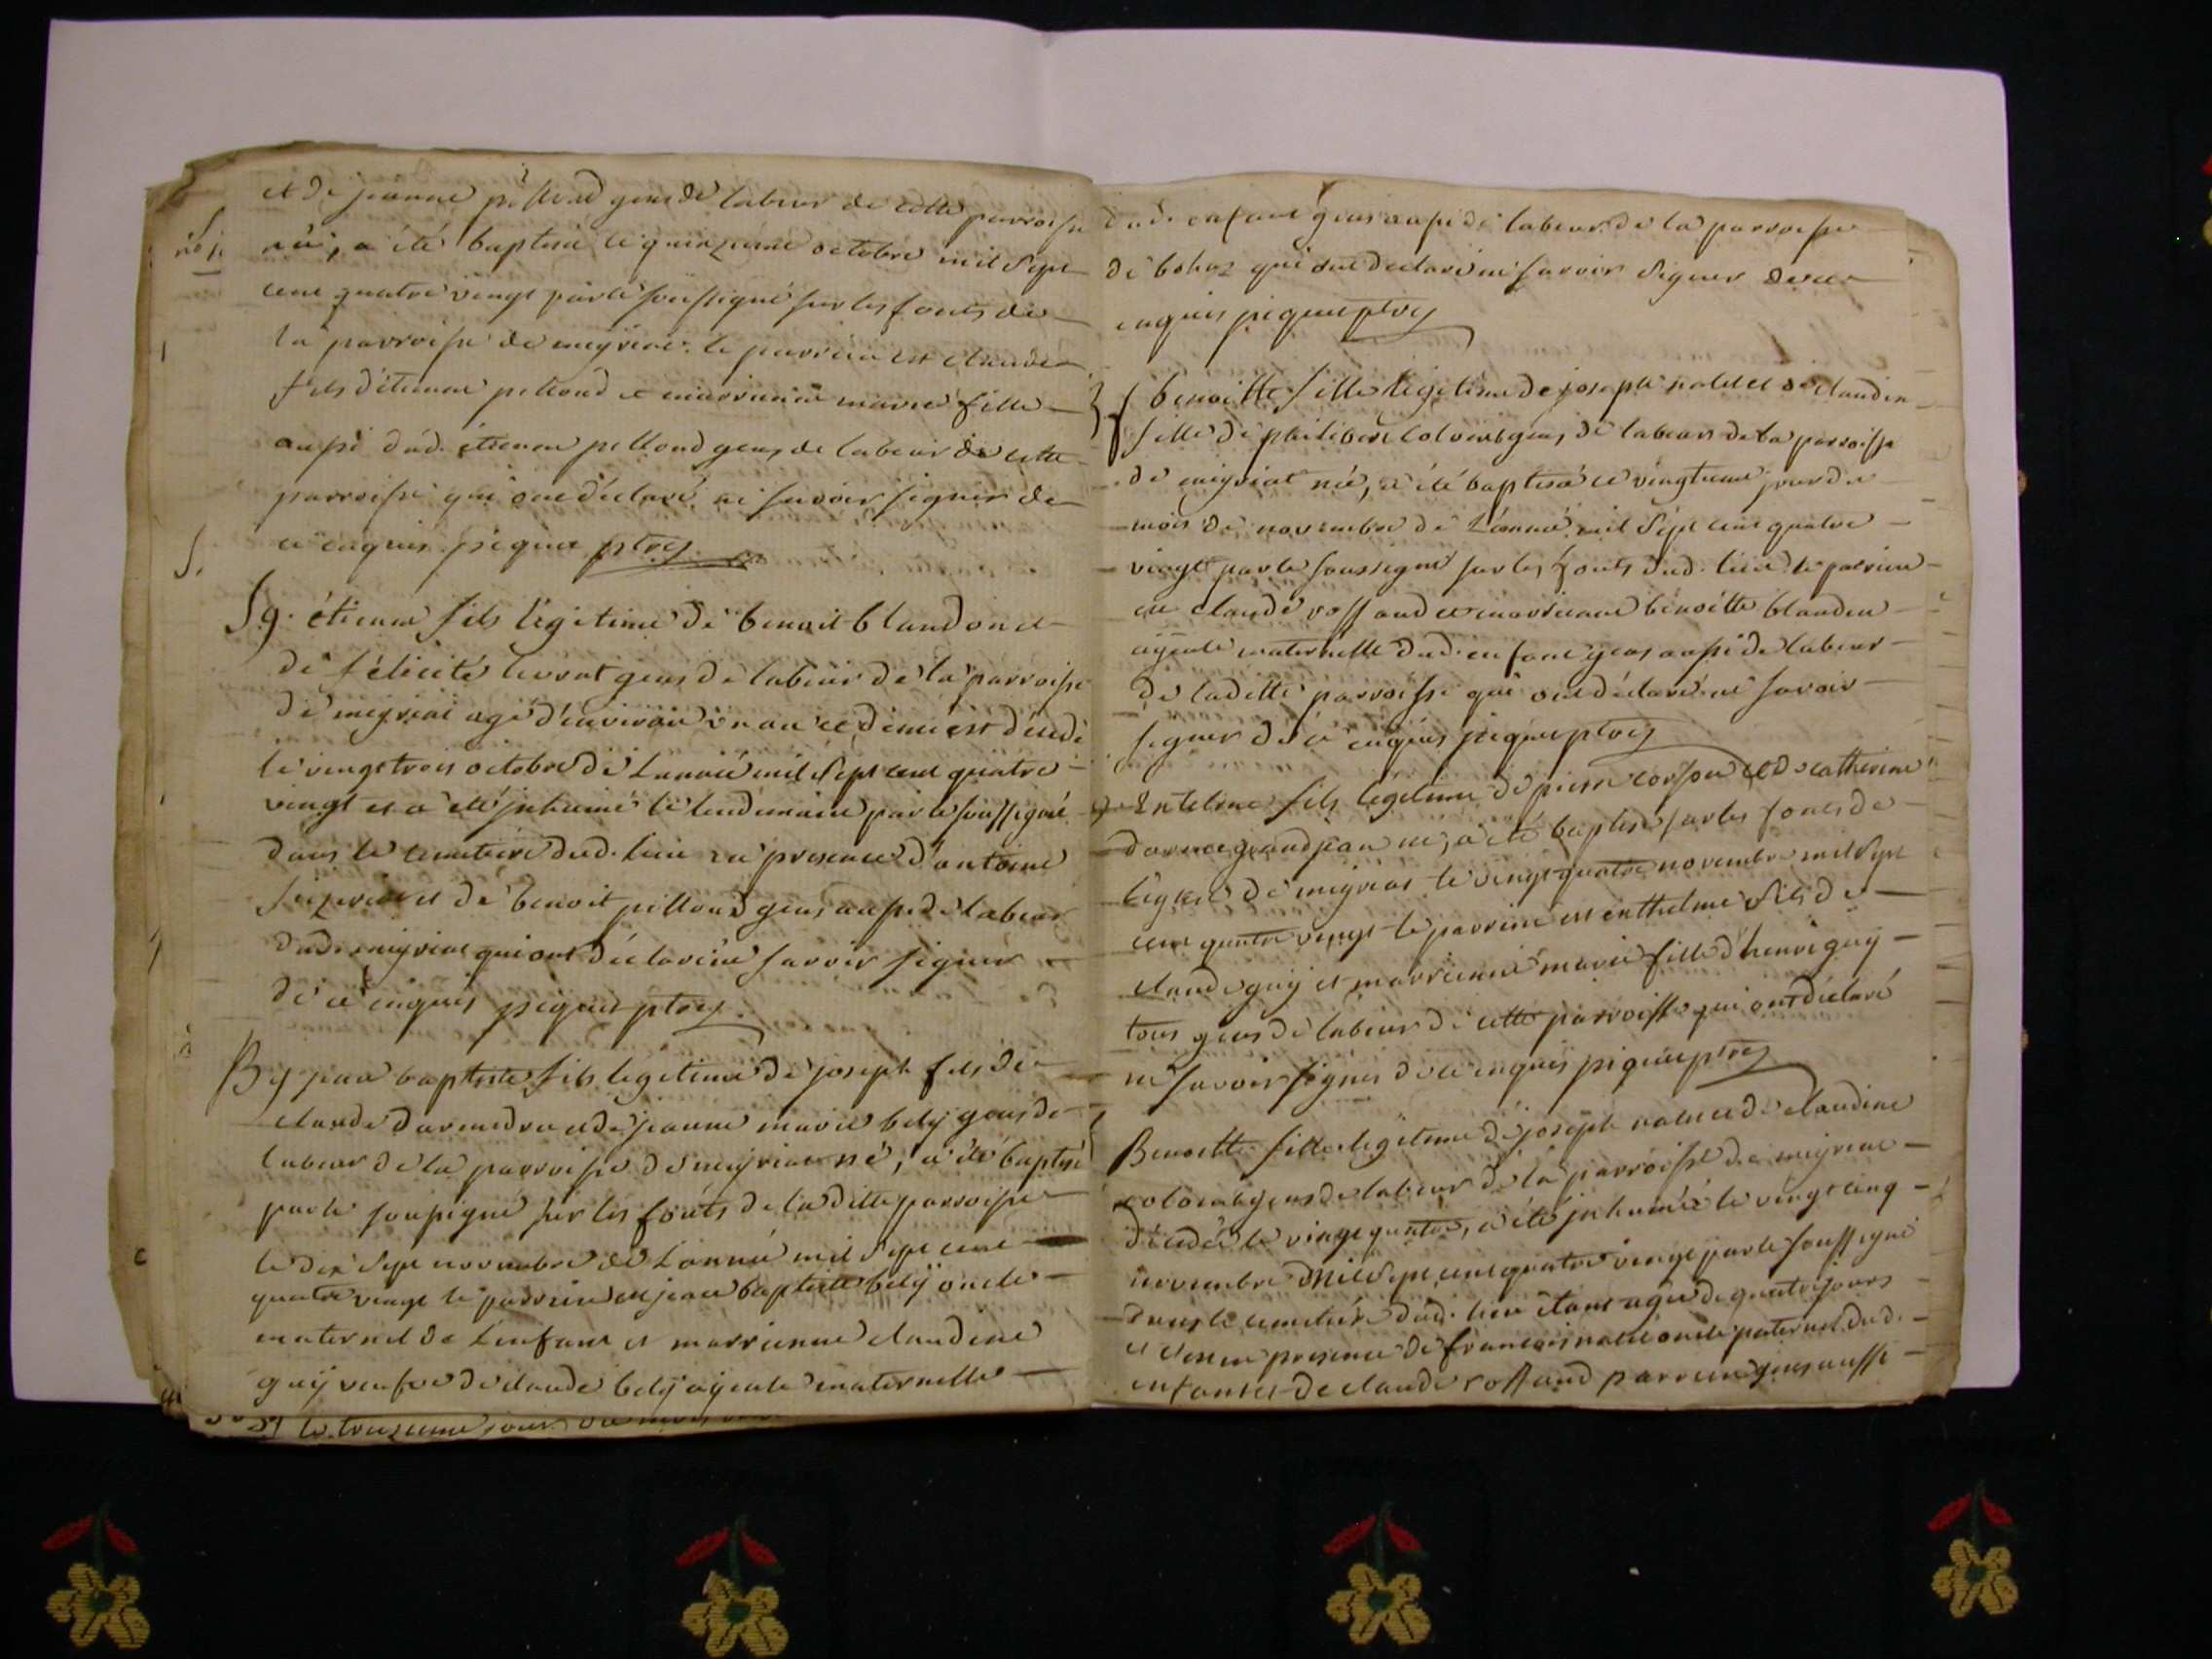 et de jeanne pillond gens de labeur de cette parroisse
né, a été baptisé le quinzieme octobre mil sept
cent quatre vingt par le soussigné sur les fonts de
la parroisse de meyriat. le parrein est claude
fils d'étienne pillond et marrienne marie fille
aussi dud. étienne pillond gens de labeur de cette
parroisse qui ont déclaré ne savoir signer de
ce enquis piquet ptre
étienne fils légitime de benoit blandon et
de félicité levrat gens de labeur de la parroisse
de meyriat agé d'environ un an et demi est décédé
le vingt trois octobre de L'année mil sept cent quatre
vingt et a été inhumé le lendemain par le soussigné
dans le cimetiere dud. lieu en presence d'antoine
et de benoit pillond gens aussi de labeur
dud. meyriat qui ont déclaré ne savoir signer
de ce enquis piquet ptre
jean baptiste fils legitime de joseph fils de
claude et de jeanne marie bely gens de
labeur de la parroisse de meyriat né, a été baptisé
par le soussigné sur les fonts de laditte parroisse
le dix sept novembre de L'année mil sept cent
quatre vingt le parrein est jean baptiste belÿ oncle
maternel de L'enfant et marrienne claudine
guÿ veufve de claude belÿ ayeule maternelle
le treizieme jour du mois
dud. enfant gens aussi de labeur de la parroisse
de bohaz qui ont declaré ne savoir signer de ce
enquis piquet ptre
benoitte fille légitime de joseph nalet et de claudine
fille de philibert colomb gens de labeur de la parroisse
de meyriat née, a été baptisée le vingtieme jour du
mois de novembre de L'année mil sept cent quatre
vingt par le soussigné sur les fonts dud. lieu le parrein
est claude roffand et marrienne benoitte blandon
ayeule maternelle dud. enfant gens aussi de labeur
de laditte parroisse qui ont déclaré ne savoir
signer de ce enquis piquet ptre
Entelme fils légitime de pierre corson et de catherine
grandjean né, a été baptisé sur les fonts de
l'eglise de meyriat le vingt quatre novembre mil sept
cent quatre vingt le parrein est enthelme fils de
claude guÿ et marrienne marie fille d'henri guÿ
tous gens de labeur de cette parroisse qui ont déclaré
ne savoir signer de ce enquis piquet ptre
Benoitte fille legitime de joseph nalet et de claudine
colomb gens de labeur de la parroisse de meyriat
décédée le vingt quatre, a été inhumée le vingt cinq
novembre mil sept cent quatre vingt par le soussigné
dans le cimetiére dud. lieu étant agée de quatre jours
et c'est en presence de francois nalet oncle paternel dud.
enfant et de claude roffand parrein gens aussi